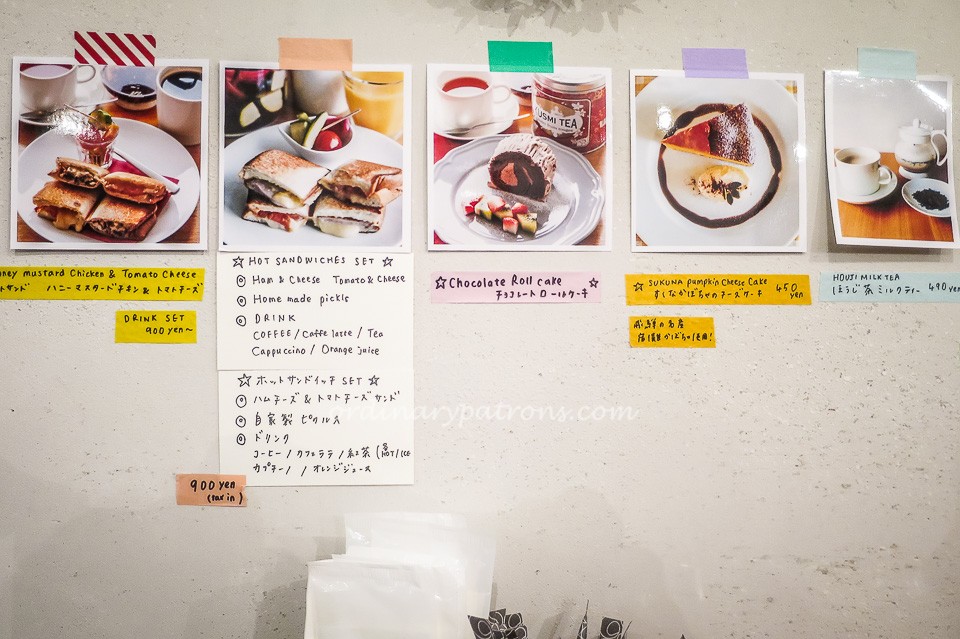 KUSMI TEA
ney mustard Chicken & Tomato Cheese
トサンド ハニーマスタードチキン & トマトチーズ
DRINK SET
900yen~
☆ HOT SANDWICHES SET ☆
◎ Ham & Cheese Tomato & Cheese
◎ Home made pickle
◎ DRINK
COFFEE / Caffe latte / Tea
Cappuccino / Orange juice
☆ ホットサンドイッチ SET ☆
◎ ハムチーズ & トマトチーズサンド
◎ 自家製 ピクルス
◎ ドリンク
コーヒー / カフェラテ / 紅茶 (HOT/ICE
カプチーノ / オレンジジュース
900yen
(tax in)
☆ Chocolate Roll cake ☆
チョコレートロールケーキ
☆ SUKUNA pumpkin Cheese Cake
すくなかぼちゃのチーズケーキ
450
yen
飛騨の名産
かぼちゃ使用!
HOUJI MILK TEA
ほうじ茶ミルクティー 490yen
ordinarypatrons.com